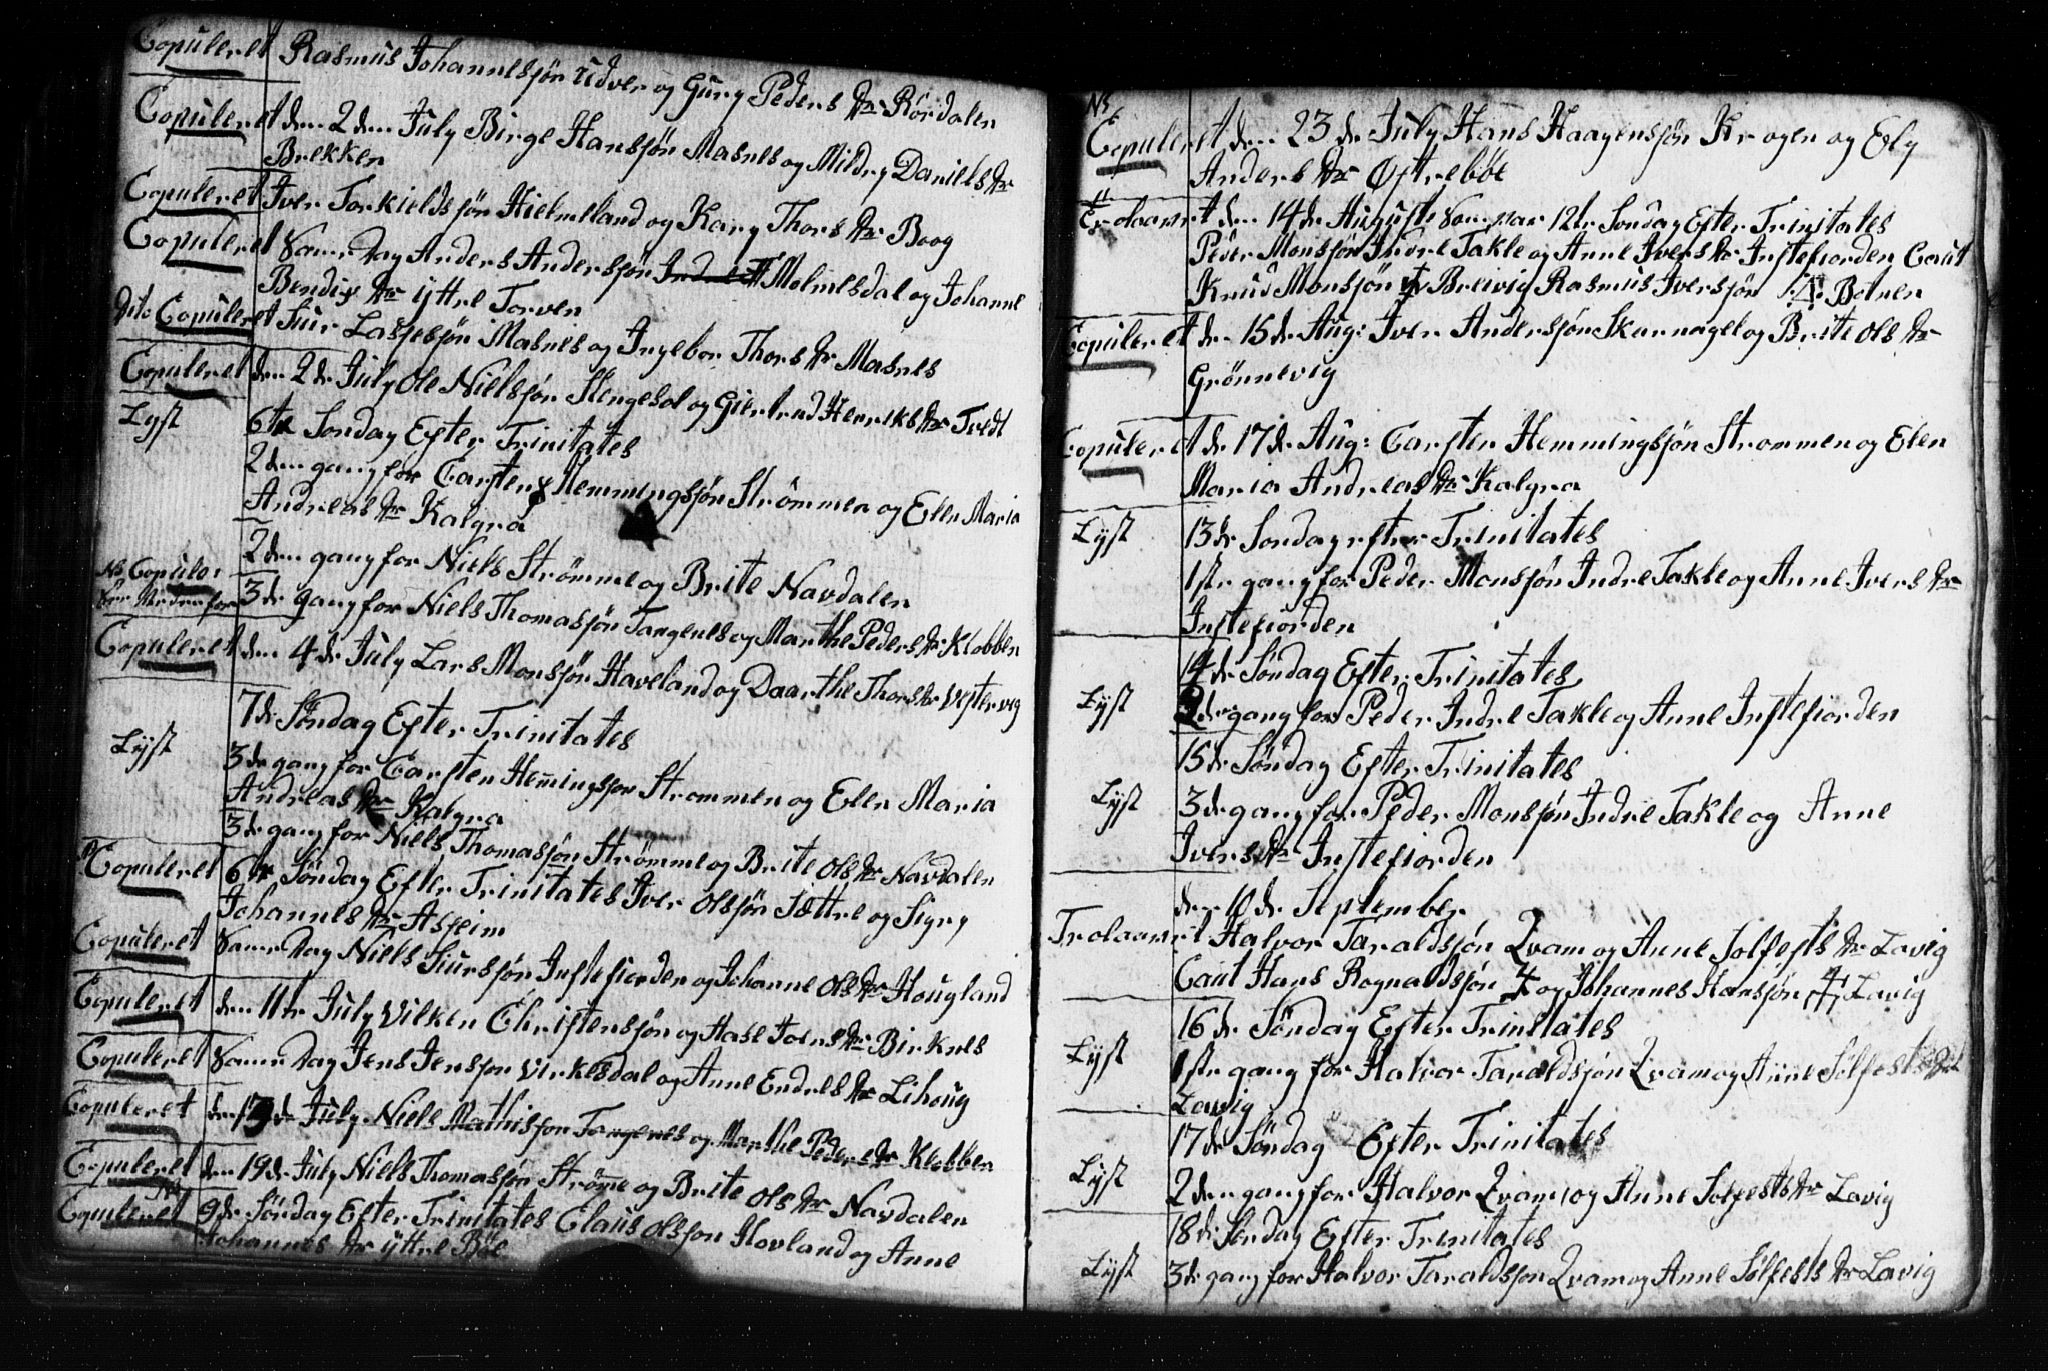 Copuleret Rasmus Johannessøn Udver og Gury Peders dtr Rørdalen
Copuleret den 2den July Birge Hanssøn Masnes og Mildry Daniels dtr
Brekken
Copuleret Iver Torkieldssøn Hielmeland og Kary Thors dtr Boog
Copuleret Samme Dag Anders Anderssøn Molmesdal og Johanne
Bendix dtr Yttre Torven
dito Copuleret Siur Lassesøn Masnes og Ingebor Thors dtr Masnes
Copuleret den 2de July Ole Nielssøn Slengesol og Giertrud Henriks dtr Tvedt
Lyst 6te Søndag Efter Trinitates
2den gang for Carsten Hemmingssøn Strømmen og Elen Maria
Andreas dtr Kalgra
2den gang for Niels Strømme og Brite Navdalen
NB Copuler: 3de gang for Niels Thomassøn Tangenes og Marthe Peders dtr Klobben
Copuleret den 4de July Lars Monssøn Haveland og Daarthe Thors dtr Vestervig
7de Søndag Efter Trinitates
Lyst
3de gang for Carsten Hemingssøn Strommen og Elen Maria
Andreas dtr Kalgra
3de gang for Niels Thomassøn Strømme og Brite Ols dtr Navdalen
Copuleret 6te Søndag Efter Trinitates Iver Olssøn Sættre og Sigry
Johannes dtr Asheim
Copuleret Samme Dag Niels Siurssøn Instefiorden og Johanne Ols dtr Hougland
Copuleret den 11te July Vilken Christenssøn og Hase Joens dtr Birknes
Copuleret Samme Dag Jens Jenssøn Virkesdal og Anne Endres dtr Lihoug
Copuleret den 13de July Niels Mathissøn Tangenes og Marthe Peders dtr Klobben
Copuleret den 19de July Niels Thomassøn Strømme og Brite Ols dtr Navdalen
Copuleret 9de Søndag Efter Trinitates Claus Olssøn Hovland og Anne
Johannes dtr Yttre Böe
NB
Copuleret den 23de July Hans Haagenssøn Krogen og Ely
Anders dtr Østrebøe
Trolaavet den 14de Auguste Som var 12te Sondag Efter Trinitates
Peder Monssøn Indre Takle og Anne Ivers dtr Instefiorden Caut
Knud Monssøn Breivig Rasmus Iverssøn Botnen
Copuleret den 15de Aug: Iver Anderssøn Skarnagel og Brite Ols dtr
Grønnevig
Copuleret d 17de Aug: Carsten Hemmingssøn Strommen og Elen
Maria Andreas dtr Kalgra
Lyst 13de Sondag efter Trinitates
1ste gang for Peder Monssøn Indre Takle og Anne Ivers dtr
Instefiorden
14de Søndag Efter Trinitates
Lyst 2de gang for Peder Indre Takle og Anne Instefiorden
15de Søndag Efter Trinitates
Lyst 3de gang for Peder Monssøn Indre Takle og Anne
Ivers dtr Instefiorden
den 10de September
Trolaavet Halvor Taraldssøn Qvam og Anne Solfests dtr Lavig
Caut Hans Rognaldssøn og Johannes Hanssøn Lavig
16de Søndag Efter Trinitates
Lyst 1ste gang for Halvor Taraldssøn Qvam og Anne Sølfests dtr
Lavig
17de Søndag Efter Trinitates
Lyst 2den gang for Halvor Qvam og Anne Solfests dtr Lavig
18de Søndag Efter Trinitates
Lyst 3de gang for Halvor Taraldssøn Qvam og Anne Sølfests dtr Lavig